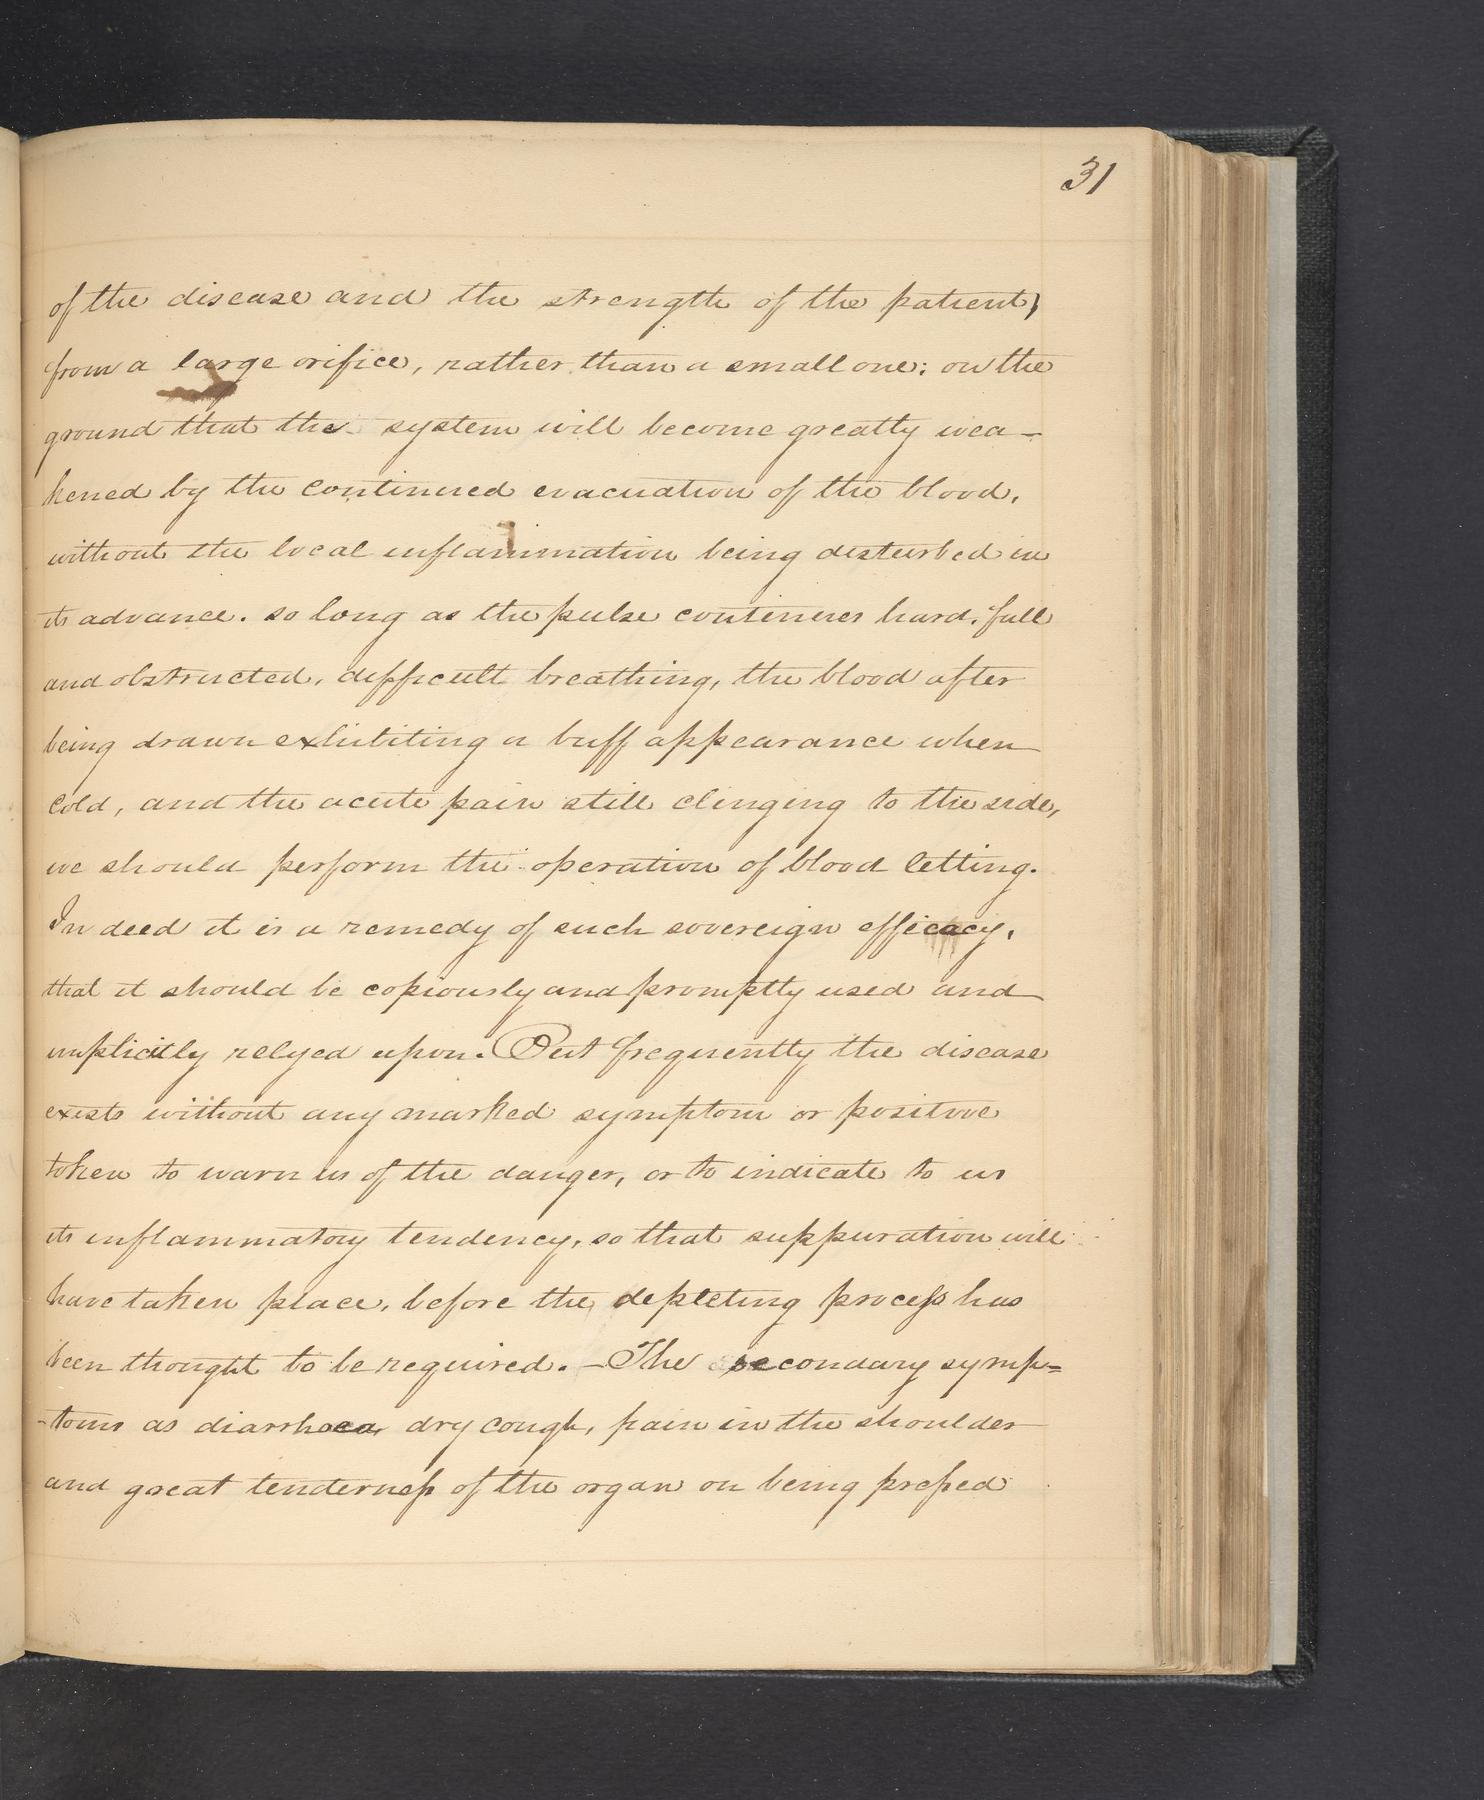 31
of the disease and the strength of the patient,
from a large orifice, rather than a small one: on the
ground that the system will become greatly wea-
kened by the continued evacuation of the blood,
without the local inflammation being disturbed in
its advance. so long as the pulse continues hard, full
and obstructed, difficult breathing, the blood after
being drawn exhibiting a buff appearance when
cold, and the acute pain still clinging to the side,
we should perform the operation of blood letting.
In deed it is a remedy of such sovereign efficacy,
that it should be copiously and promptly used and
implicitly relyed upon. But frequently the disease
exists without any marked symptom or positive
token to warn us of the danger, or to indicate to us
its inflammatory tendency, so that suppuration will
have taken place, before the depleting process has
been thought to be required. - The secondary symp=
-toms as diarrhoea, dry cough, pain in the shoulder
and great tenderness of the organ on being pressed